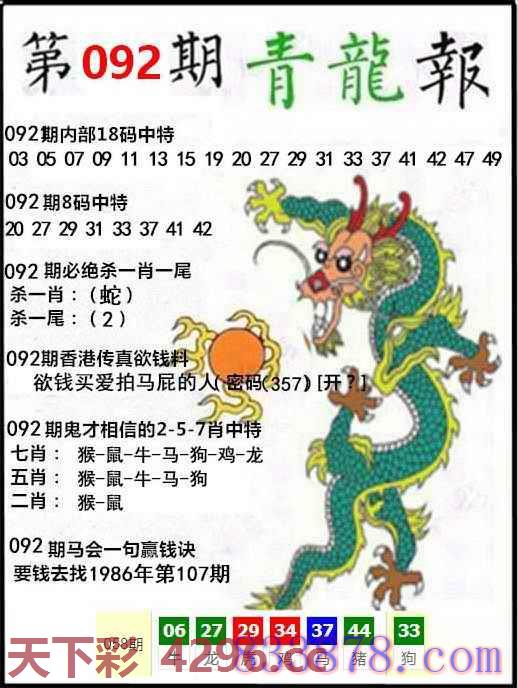 第092期青龍報
092期内部18码中特
03 05 07 09 11 13 15 19 20 27 29 31 33 37 41 42 47 49
092期8码中特
20 27 29 31 33 37 41 42
092期必绝杀一肖一尾
杀一肖：（蛇）
杀一尾：（2）
092期香港传真欲钱料
欲钱买爱拍马屁的人(密码(357)[开?]
092期鬼才相信的2-5-7肖中特
七肖： 猴-鼠-牛-马-狗-鸡-龙
五肖： 猴-鼠-牛-马-狗
二肖： 猴-鼠
092期马会一句赢钱诀
要钱去找1986年第107期
058期 06 27 29 34 37 44 33
牛 龙 虎 鸡 马 猪 狗
天下彩 4296.cc